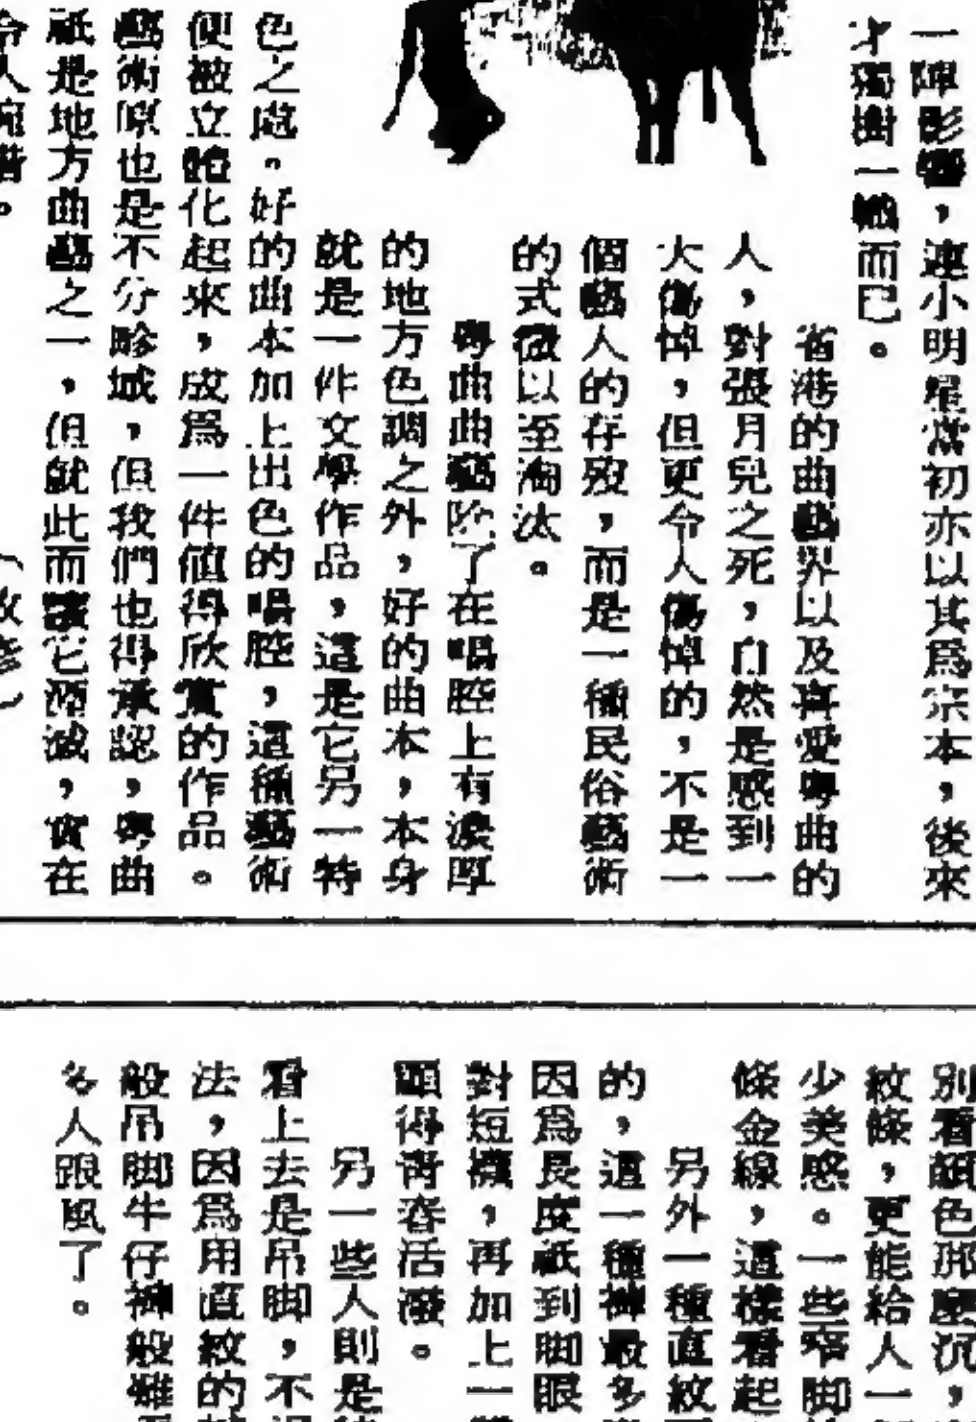 一陣影響，連小明星當初亦以其爲宗本，後來
才獨樹一幟而已。
省港的曲藝界以及喜愛粵曲的
人，對張月兒之死，自然是感到一
大傷悼，但更令人傷悼的，不是一
個藝人的存歿，而是一種民俗藝術
的式微以至淘汰。
粵曲曲藝除了在唱腔上有濃厚
的地方色調之外，好的曲本，本身
就是一件文學作品，這是它另一特
色之處。好的曲本加上出色的唱腔，這種藝術
便被立體化起來，成爲一件値得欣賞的作品。
藝術原也是不分畛域，但我們也得承認，粵曲
祇是地方曲藝之一，但就此而讓它湮滅，實在
令人惋惜。
別看顏色那麼沉，
紋條，更能給人一
少美感。一些窄脚
條金線，這樣看起
另外一種直紋
的，這一種褲最多
因爲長度祇到脚眼
對短襪，再加上一
顯得靑春活潑。
另一些人則是
看上去是吊脚，不
法，因爲用直紋的
般吊脚牛仔褲般難
多人跟風了。